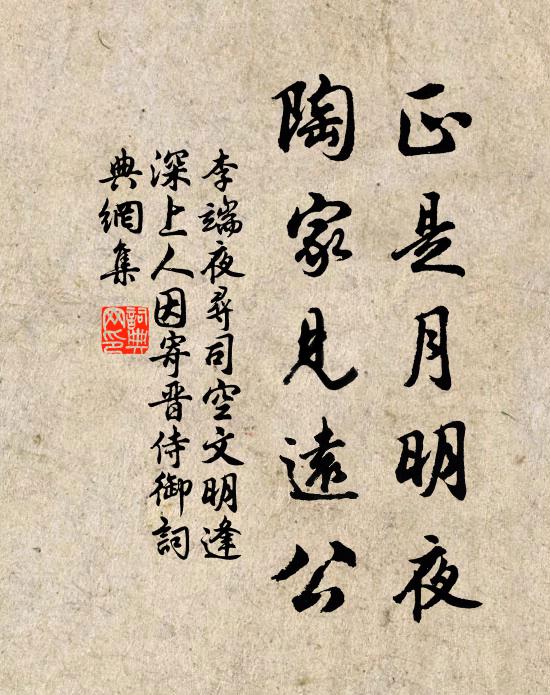 正是月明夜
陶家見遠公
李端夜尋司空文明逢
深上人因寄晉侍御詞
典網集
詞典
网印